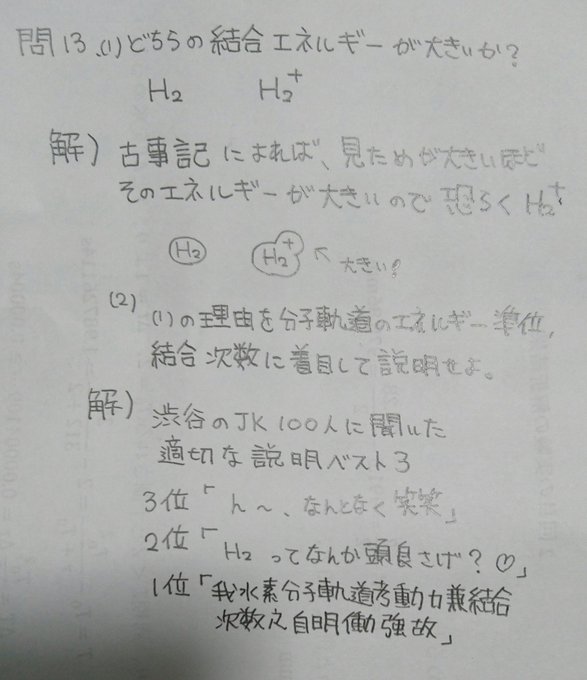 問13、(1)どちらの結合エネルギーが大きいか?
H₂ H₂⁺
解) 古事記によれば、見ためが大きいほど
そのエネルギーが大きいので恐らくH₂⁺
H₂ H₂⁺ ↖ 大きい!
(2) (1)の理由を分子軌道のエネルギー準位,
結合次数に着目して説明せよ。
解) 渋谷のJK100人に聞いた
適切な説明ベスト3
3位「ん〜、なんとなく笑笑」
2位「H₂ってなんか頭良さげ?♡」
1位「我水素分子軌道考動力兼結合
次数之自明働強故」